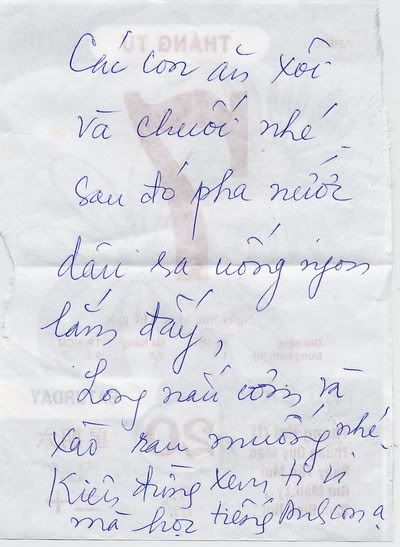 THÁNG TƯ
Các con ăn xôi
và chuối nhé.
Sau đó pha nước
dâu uống ngon
lắm đấy,
Long nấu cơm và
xào rau muống nhé.
Kiên đừng xem ti vi
mà học tiếng Anh con ạ